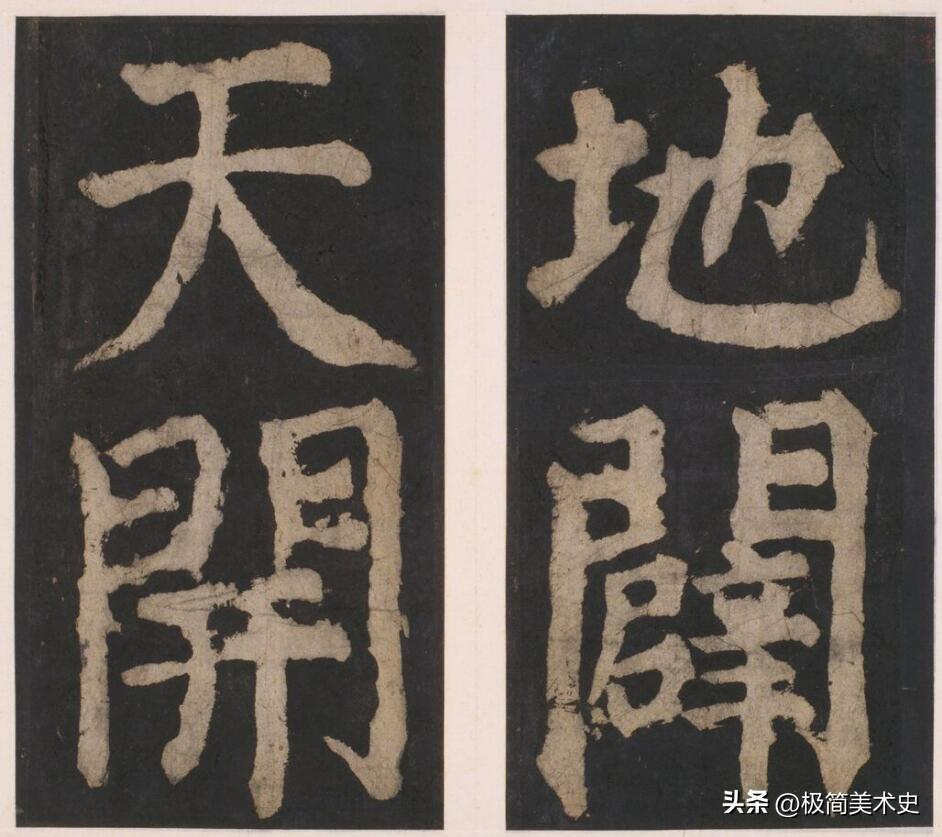 地闢
天開
头条 @极简美术史